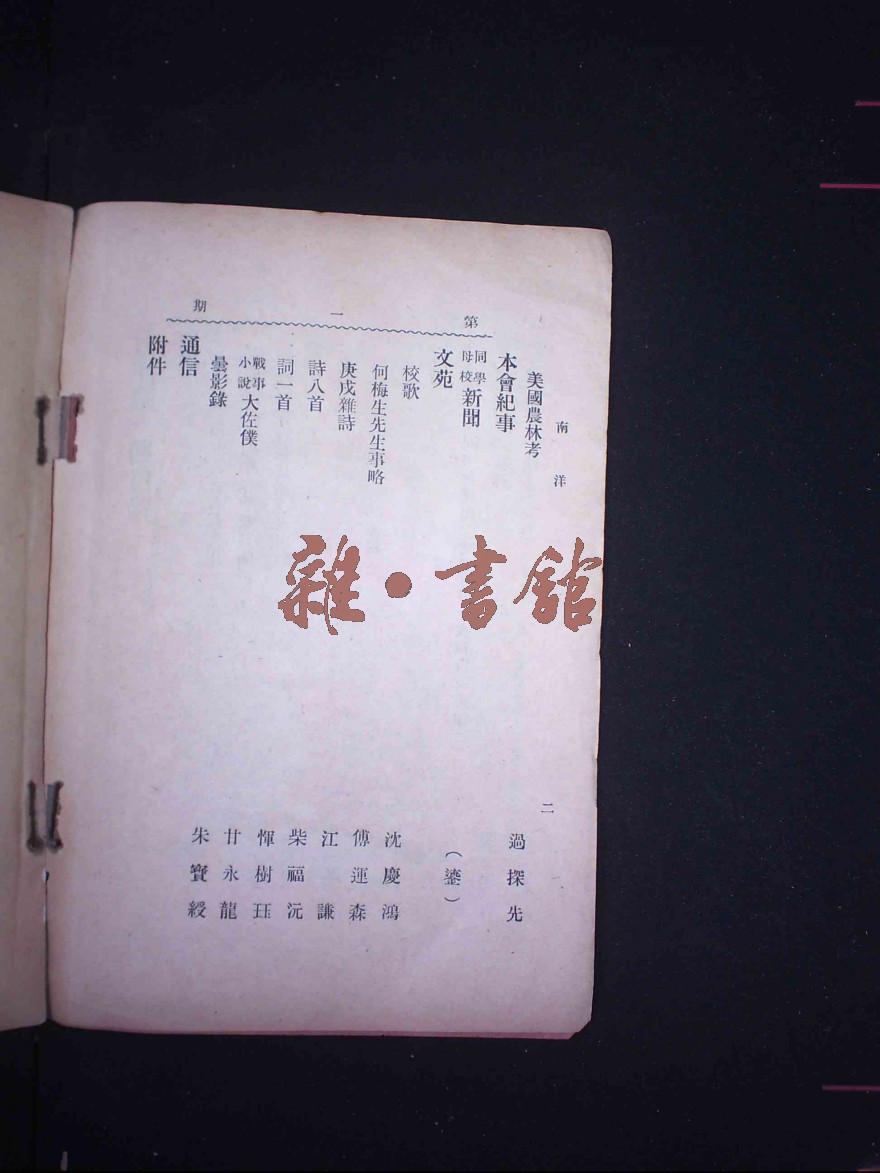 南洋 二
美國農林考 過探先
本會紀事
同學母校新聞 （鎏）
文苑
校歌 沈慶鴻
何梅生先生事略 傅運森
庚戌雜詩 江謙
詩八首 柴福沅
詞一首 惲樹珏
戰事小說大佐僕 甘永龍
曇影錄 朱寶綬
通信
附件
第一期
雜·書館